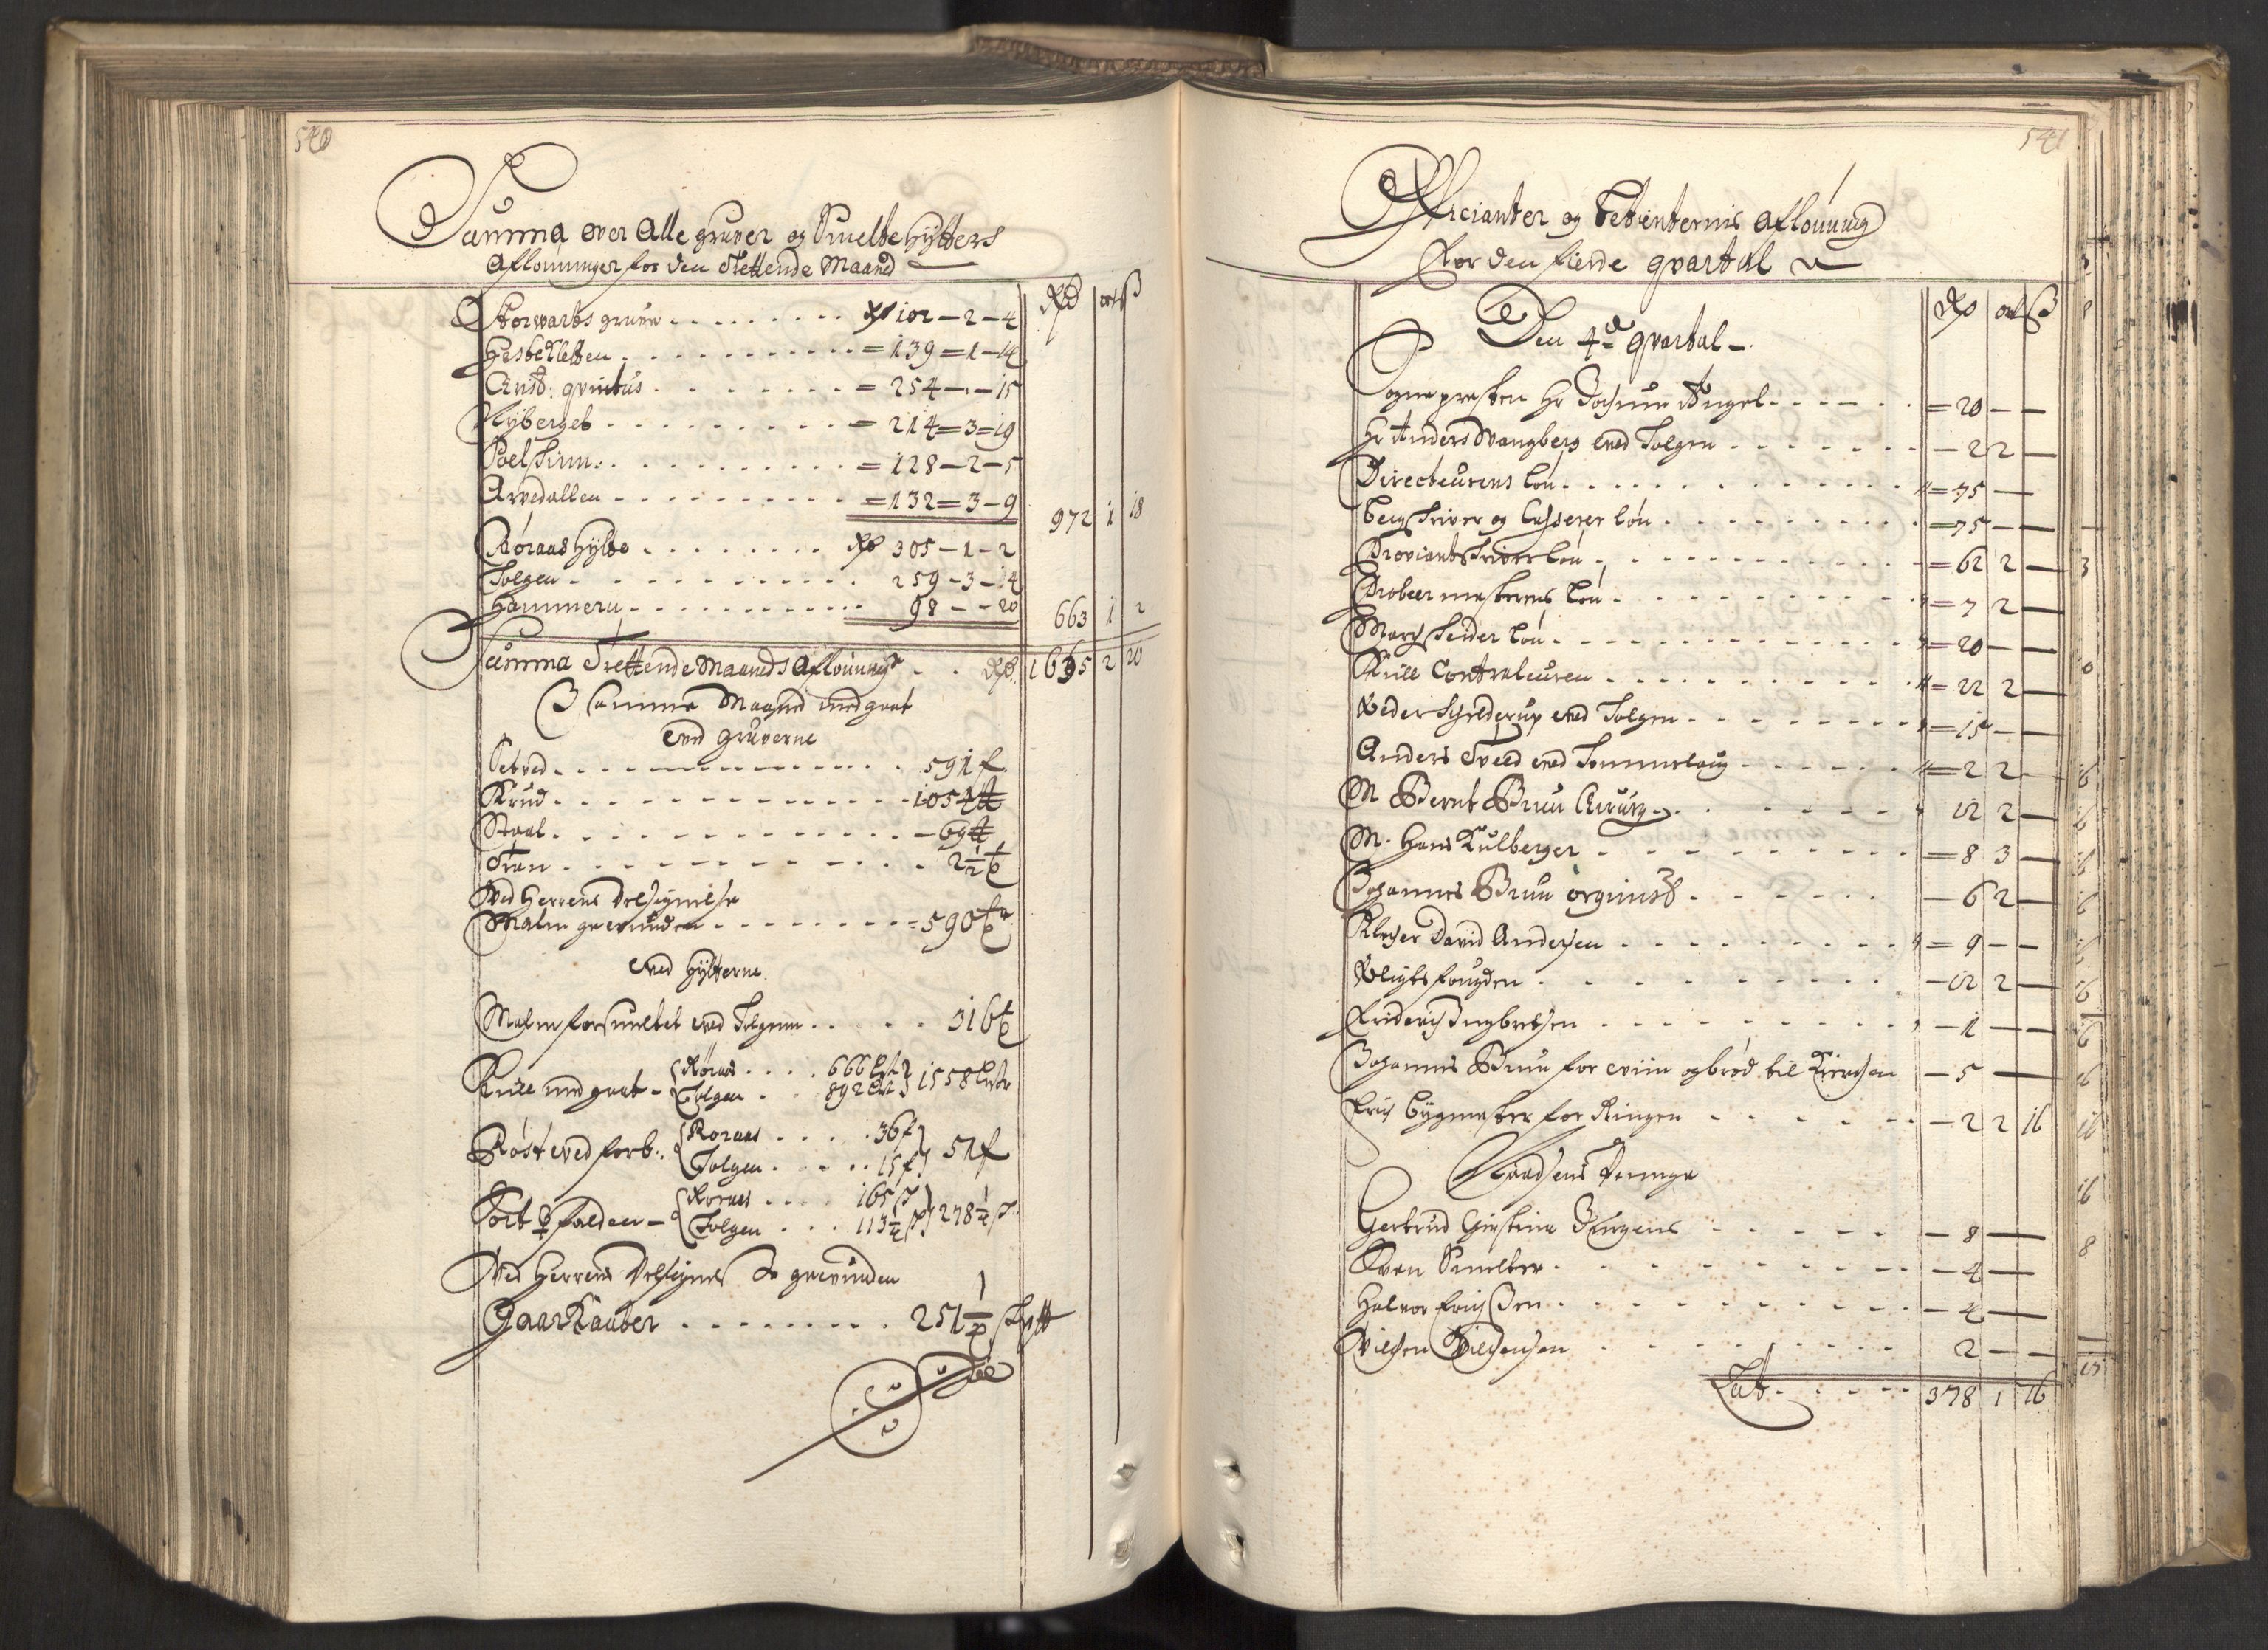 540
Summa over Alle gruver og Smelte Hytters
Aflønninger for den Trettende Maaned
Rd ort ß
Storvarts gruve . . . . . . . . . Rd 102 – 2 – 4
Hestekletten . . . . . . . . . . = 139 = 1 – 14
Qvintus . . . . . . . . = 254 – – 15
Nyberget . . . . . . . . . = 214 = 3 = 19
. . . . . . . . . . = 128 – 2 – 5
Arvedallen . . . . . . . . . . = 132 = 3 – 9 972 1 18
Røraas Hytte . . . . . . . . Rd 305 – 1 – 2
Tolgen . . . . . . . . . . 259 – 3 – 14
Hammeren . . . . . . . . . . . 98 – – 20 663 1 2
Summa Trettende Maaneds Aflønning . . Rd. 1635 2 20
I samme Maaned medgaat
ved gruverne
Setved . . . . . . . . . . . . . . 591 f.
Krud . . . . . . . . . . . . . 1054 ℔
Staal . . . . . . . . . . . . . 69 ℔
Tran . . . . . . . . . . . 2½ t
Ved Herrens Velsignelse
Malm gevunden . . . . . . . . = 590 tr
ved Hytterne
Malm forsmeltet ved Tolgen . . . . . 316 t
Kull medgaat – Røraas . . . . 666 Lst
Tolgen . . 892 Lst 1558 Lester
Røstved forb: Roraas . . . . 36 f
Tolgen . . . . . 15 f. 51 f
Sort falden – Roraas . . . . 165
Tolgen . . . 113¼ 278¼
Ved Herrens Velsignelse gevunden
Gaar Kaaber . . . . . . . . 251 1/ Sk℔
541
Officianter og Betienternis Aflønning
For den fierde qvartal
Rd ort ß
Den 4de qvartal –
Sogne presten Hr Jochum Angel . . . . . . = 20 – –
Hr Anders Wangberg ved Tolgen . . . . . . . – 2 2 –
Directeurens løn . . . . . . . . . . . . . = 75 –
Bergskriver og Casserer løn . . . . . . . . . = 75 – –
Proviantskriver løn . . . . . . . . . . . . = 62 2 –
Probeer mesterens løn . . . . . . . . . . . = 7 2 –
Marchskeider løn . . . . . . . . . . . . . = 20 – –
Kull Contraleuren . . . . . . . . . . . . = 22 2 –
Peder Schielderup ved Tolgen . . . . . . . . = 15 – –
Anders Tveed ved Tommelaug . . . . . . = 2 2 –
M Bernt Bruu Chirurg . . . . . . . . 12 2 –
M. Hans Kulberger . . . . . . . . . = 8 3 –
Johannes Bruu orgenist . . . . . . – 6 2 –
Klocher David Andersen . . . . . . . . . = 9 – –
Pligtsfougden . . . . . . . . . – 12 2 –
Friderich Ingbretsen . . . . . . . . . . – 1 – –
Johannes Bruu for viin og brød til Kirchen – 5 –
Erich Bygmester for Ringen . . . . . . – 2 2 16
Naadsens Penge
Gertrud Giertrine . . . . . . – 8 –
Sven Smelter . . . . . . . . . – 4 –
Halvor Erichsen . . . . . . . . . – 4 –
Nilsen . . . . . . . . . 2 – –
Lat . . . . . 378 1 16